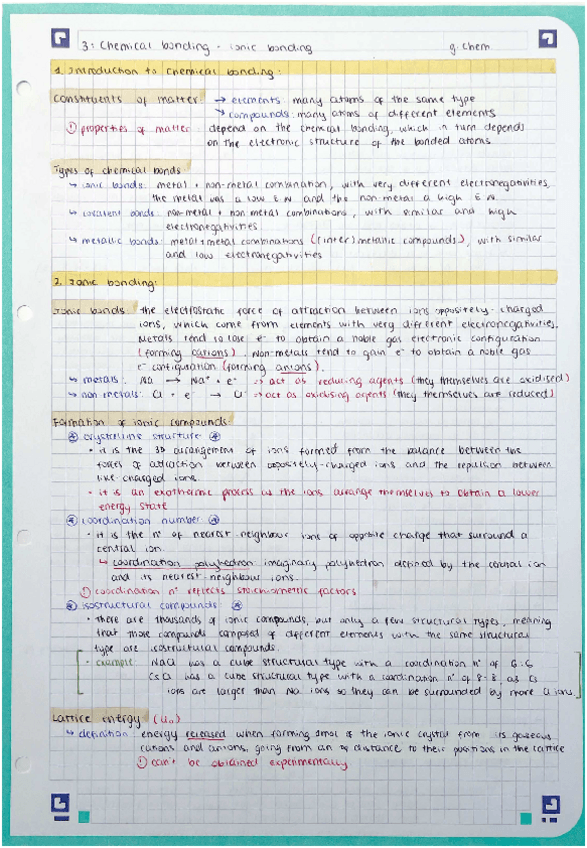 3: Chemical bonding - ionic bonding g. chem
1. Introduction to chemical bonding:
Constituents of matter: → elements: many atoms of the same type
↘ compounds: many atoms of different elements
! properties of matter: depend on the chemical bonding, which in turn depends
on the electronic structure of the bonded atoms.
Types of chemical bonds:
↳ ionic bonds: metal + non-metal combination, with very different electronegativities,
the metal has a low E.N and the non-metal a high E.N.
↳ covalent bonds: non-metal + non metal combinations, with similar and high
electronegativities
↳ metallic bonds: metal + metal combinations ((inter)metallic compounds), with similar
and low electronegativities
2. Ionic bonding:
Ionic bonds: the electrostatic force of attraction between ions oppositely-charged
ions, which come from elements with very different electronegativities.
Metals tend to lose e⁻ to obtain a noble gas electronic configuration
(forming cations). Non-metals tend to gain e⁻ to obtain a noble gas
e⁻ configuration (forming anions).
↳ metals: Na → Na⁺ + e⁻ => act as reducing agents (they themselves are oxidised)
↳ non metals: Cl + e⁻ → Cl⁻ => act as oxidising agents (they themselves are reduced)
Formation of ionic compounds:
crystalline structure
• it is the 3D arrangement of ions formed from the balance between the
forces of attraction between oppositely-charged ions and the repulsion between
like-charged ions.
• it is an exothermic process as the ions arrange themselves to obtain a lower
energy state
coordination number
• it is the nº of nearest-neighbour ions of opposite charge that surround a
central ion.
↳ coordination polyhedron: imaginary polyhedron defined by the central ion
and its nearest-neighbour ions.
! coordination nº reflects stoichiometric factors
isostructural compounds:
• there are thousands of ionic compounds, but only a few structural types, meaning
that those compounds composed of different elements with the same structural
type are isostructural compounds.
• example: NaCl has a cube structural type with a coordination nº of 6:6
CsCl has a cube structural type with a coordination nº of 8:8, as Cs
ions are larger than Na ions so they can be surrounded by more Cl ions.
Lattice energy (U₀)
↳ definition: energy released when forming 1mol of the ionic crystal from its gaseous
cations and anions, going from an ∞ distance to their positions in the lattice
! can't be obtained experimentally